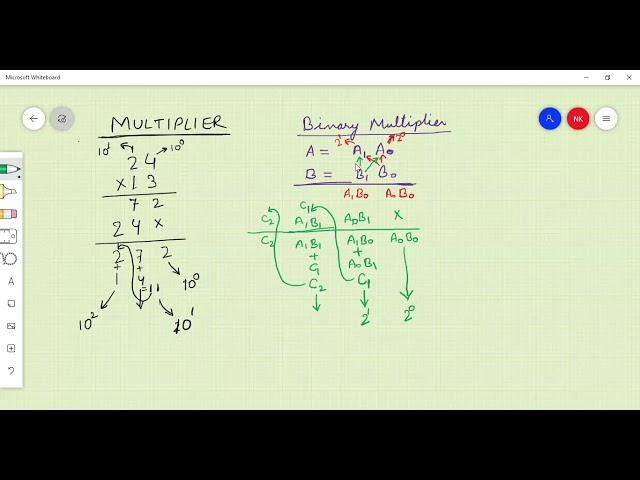 Microsoft Whiteboard
NK
MULTIPLIER
10¹ 10⁰
2 4
× 1 3
7 2
2 4 ×
2 7 2
+ +
1 4 = 11 10⁰
10² 10¹
Binary Multiplier
2¹ 2⁰
A = A₁ A₀
B = B₁ B₀
A₁B₀ A₀B₀
C₂ C₁
A₁B₁ A₀B₁ ×
C₂ A₁B₁ A₁B₀ A₀B₀
+ +
C₁ A₀B₁
C₂ C₁
2¹ 2⁰